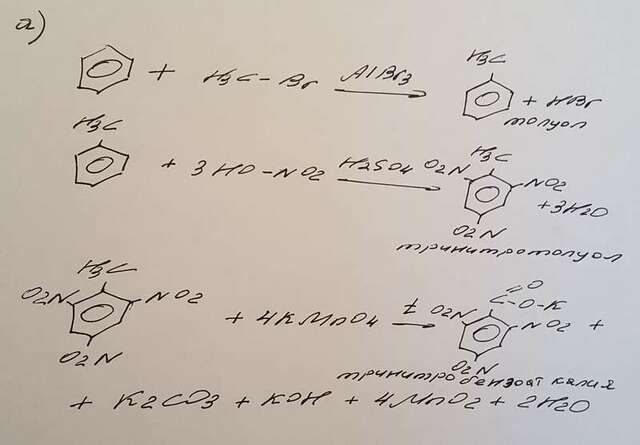 а)
H3C
+ H3C-Br AlBr3 + HBr
толуол
H3C H3C
+ 3HO-NO2 H2SO4 O2N NO2
+3H2O
O2N
тринитротолуол
H3C C=O
O2N NO2 -O-K
+ 4KMnO4 t O2N NO2 +
O2N O2N
тринитробензоат калия
+ K2CO3 + KOH + 4MnO2 + 2H2O